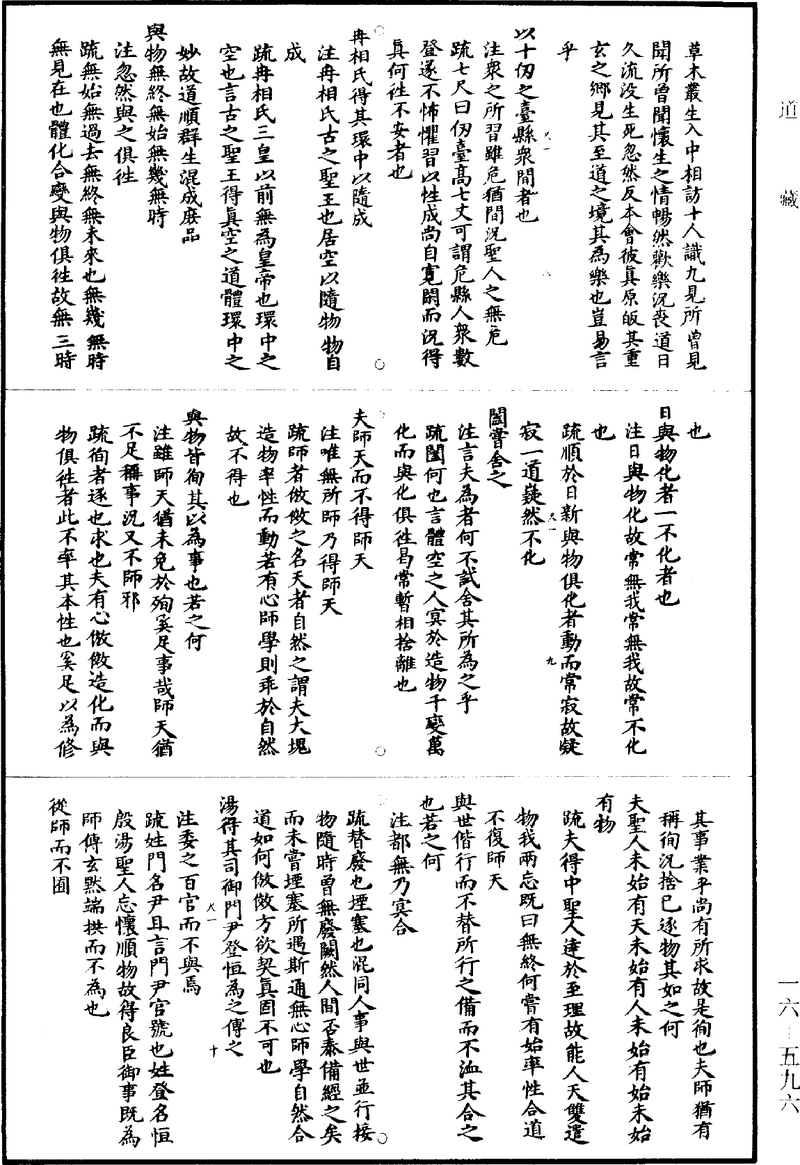 道藏
草木叢生入中相訪十人識九見所曾見
聞所曾聞懷生之情暢然歡樂況喪道日
久流没生死忽然反本會彼真原皈其重
玄之鄉見其至道之境其為樂也豈易言
乎
以十仞之臺縣衆間者也
注衆之所習雖危猶閒況聖人之無危
疏七尺曰仞臺高七丈可謂危縣人衆數
登遂不怖懼習以性成尚自寬閑而況得
真何往不安者也
冉相氏得其環中以隨成
注冉相氏古之聖王也居空以隨物物自
成
疏冉相氏三皇以前無為皇帝也環中之
空也言古之聖王得真空之道體環中之
妙故道順群生混成庶品
與物無終無始無幾無時
注忽然與之俱往
疏無始無過去無終無未來也無幾無時
無見在也體化合變與物俱往故無三時
也
日與物化者一不化者也
注日與物化故常無我常無我故常不化
也
疏順於日新與物俱化者動而常寂故凝
寂一道嶷然不化
闔嘗舍之
注言夫為者何不試舍其所為之乎
疏闔何也言體空之人冥於造物千變萬
化而與化俱往曷常暫相捨離也
夫師天而不得師天
注唯無所師乃得師天
疏師者倣傚之名天者自然之謂夫大塊
造物率性而動若有心師學則乖於自然
故不得也
與物皆徇其以為事也若之何
注雖師天猶未免於殉奚足事哉師天猶
不足稱事況又不師邪
疏徇者逐也求也夫有心倣傚造化而與
物俱往者此不率其本性也奚足以為修
其事業乎尚有所求故是徇也夫師猶有
稱徇況捨己逐物其如之何
夫聖人未始有天未始有人未始有始未始
有物
疏夫得中聖人達於至理故能人天雙遣
物我兩忘既曰無終何嘗有始率性合道
不復師天
與世偕行而不替所行之備而不洫其合之
也若之何
注都無乃冥合
疏替廢也堙塞也混同人事與世並行接
物隨時曾無廢闕然人間否泰備經之矣
而未嘗堙塞所遇斯通無心師學自然合
道如何倣傚方欲契真固不可也
湯得其司御門尹登恒為之傅之
注委之百官而不與焉
疏姓門名尹且言門尹官號也姓登名恒
殷湯聖人忘懷順物故得良臣御事既為
師傅玄默端拱而不為也
從師而不囿
一六－五九六